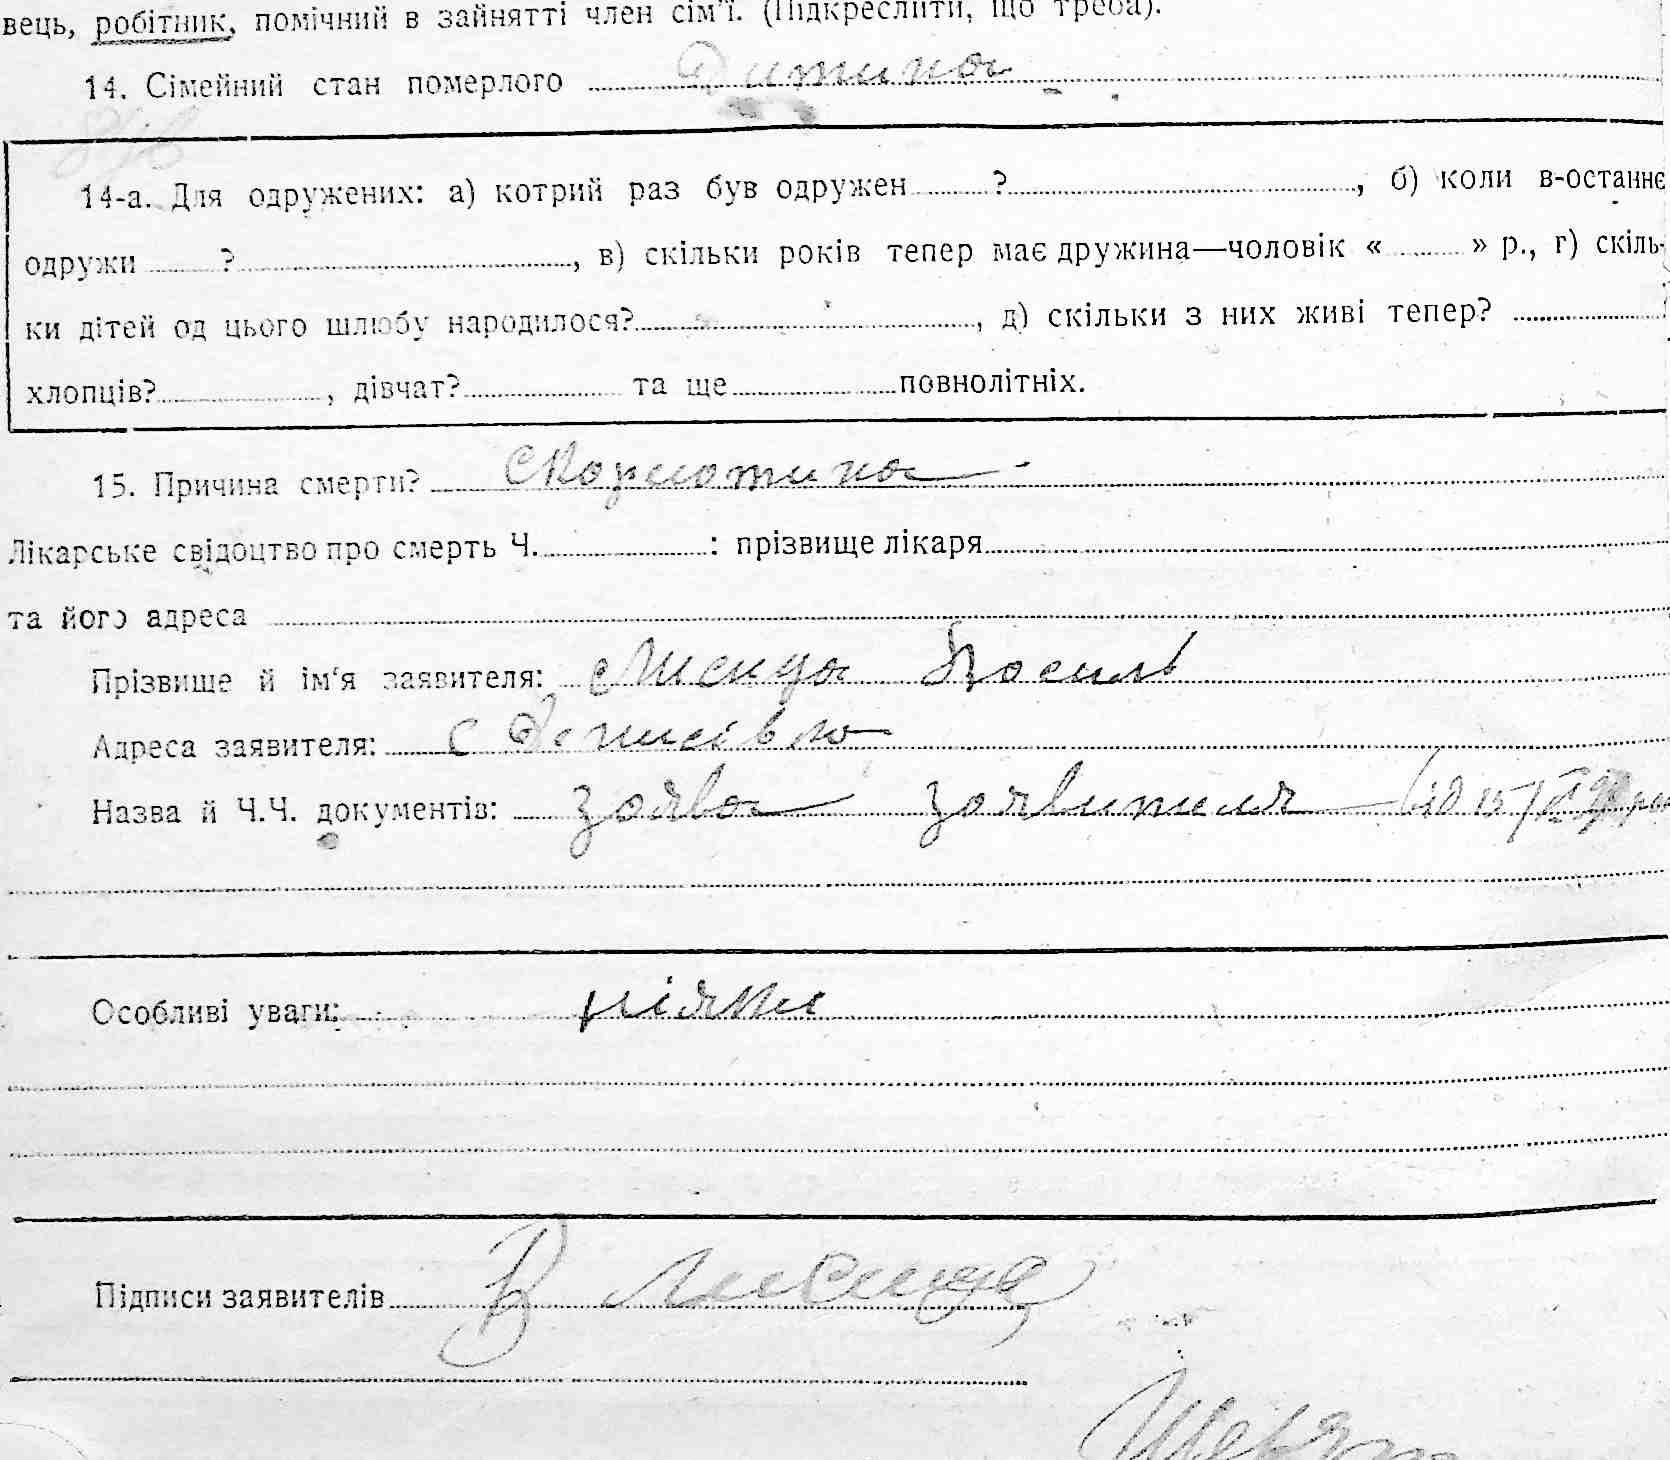 вець, робітник, помічний в зайнятті член сім'ї. (Підкреслити, що треба).
14. Сімейний стан померлого Дитина
14-а. Для одружених: а) котрий раз був одружен ?, б) коли в-останнє
одружи ?, в) скільки років тепер має дружина—чоловік « » р., г) скіль-
ки дітей од цього шлюбу народилося?, д) скільки з них живі тепер?
хлопців?, дівчат? та ще повнолітніх.
15. Причина смерти? Скорлотина
Лікарське свідоцтво про смерть Ч. : прізвище лікаря
та його адреса
Прізвише й ім'я заявителя: Лисиця Василь
Адреса заявителя: с Денисівка
Назва й Ч.Ч. документів: Заява заявителя
Особливі уваги: ніяки
Підписи заявителів В Лисица